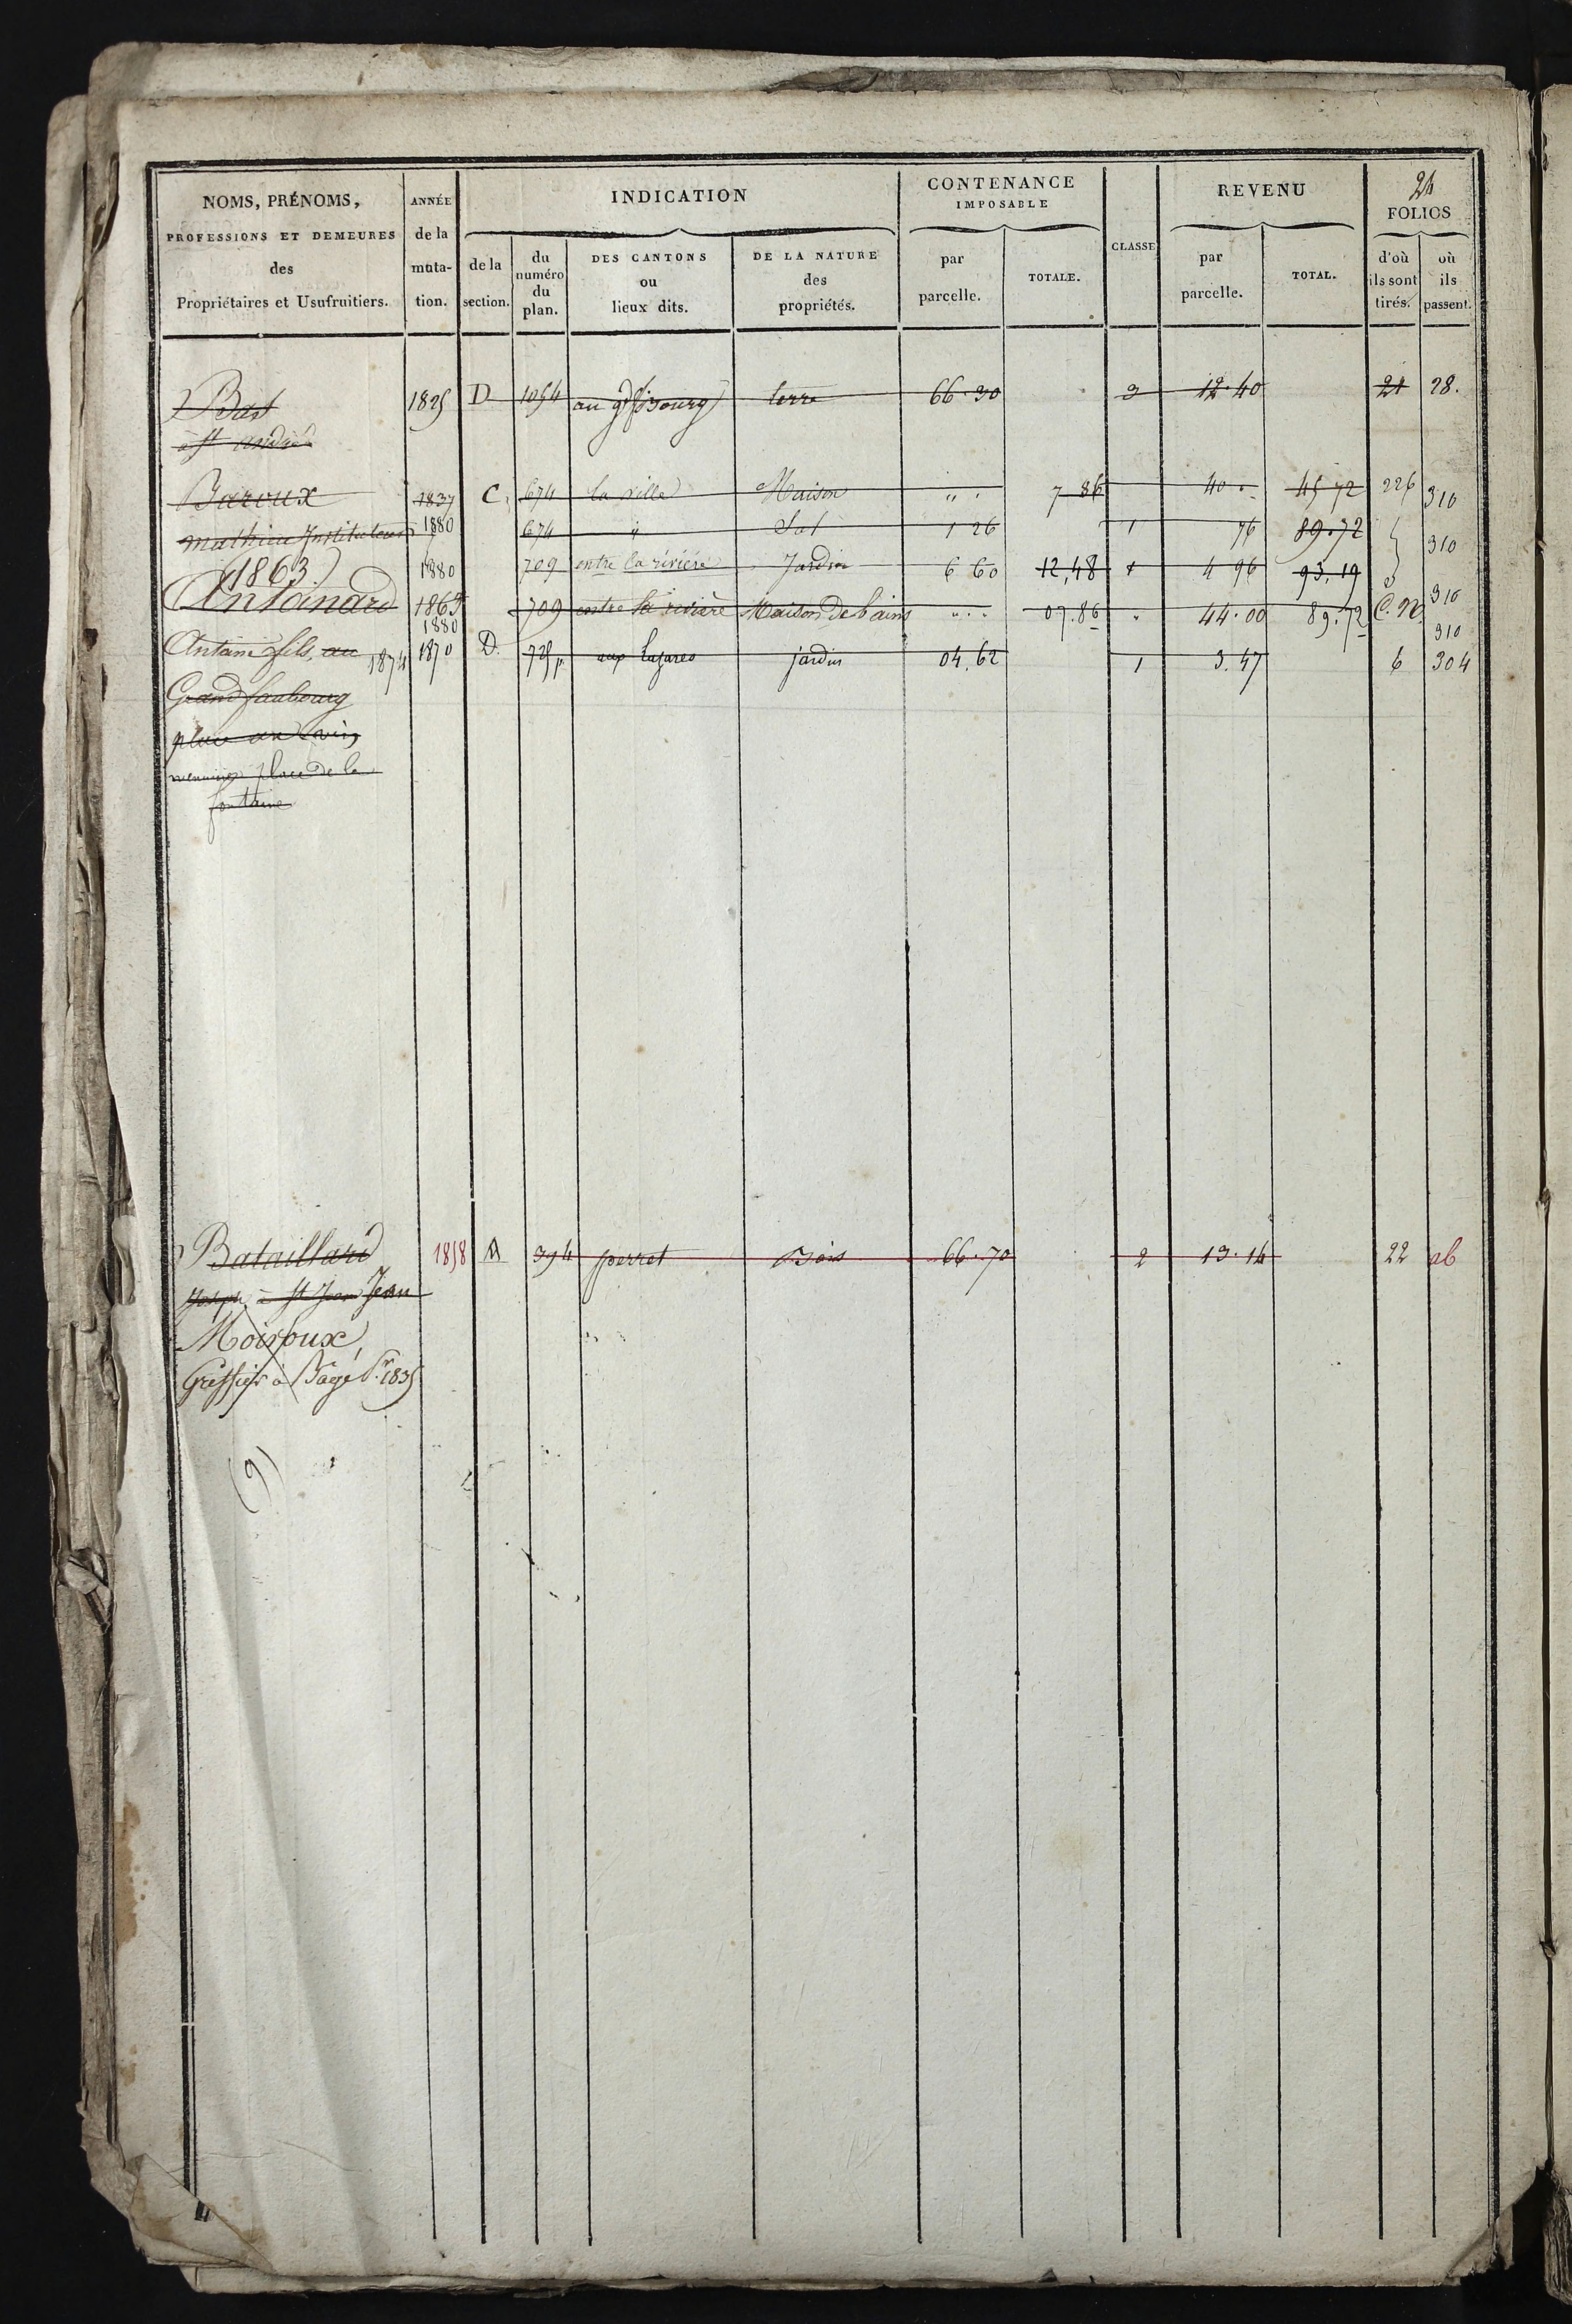 24
NOMS, PRÉNOMS, PROFESSIONS ET DEMEURES des Propriétaires et Usufruitiers.
ANNÉE de la muta-tion.
INDICATION
de la section.
du numéro du plan.
DES CANTONS ou lieux dits.
DE LA NATURE des propriétés.
CONTENANCE IMPOSABLE
par parcelle.
TOTALE.
CLASSE
REVENU
par parcelle.
TOTAL.
FOLIOS
d'où ils sont tirés.
où ils passent.
Bast 1825 D 1054 au gd fbourg terre 66.30 3 12.40 21 28.
à St andré
Baroux 1837 C. 674 la ville Maison " " 7 86 40 " 45 72 226 310
mathieu Instituteur 1880 674 " Sol 1 26 1 76 89.72 310
(1863) 1880 709 entre la rivière Jardin 6 60 12,48 1 4 96 93.19
Antanard 1865 709 entre la rivière Maison de bains " " 07.86 " 44.00 89.72 C. N. 310
1880 310
Antoine fils, au 1874 1870 D. 725 p. aux lazares jardin 04.62 1 3.47 6 304
Grand faubourg
place au vin
menuisier place de la
fontaine
Bataillard 1858 A 394 perret Bois 66.70 2 13.14 22 ab
Joseph à St Jean Jean
Moiroux,
Greffier à Bagé Pr. 1835
(9)